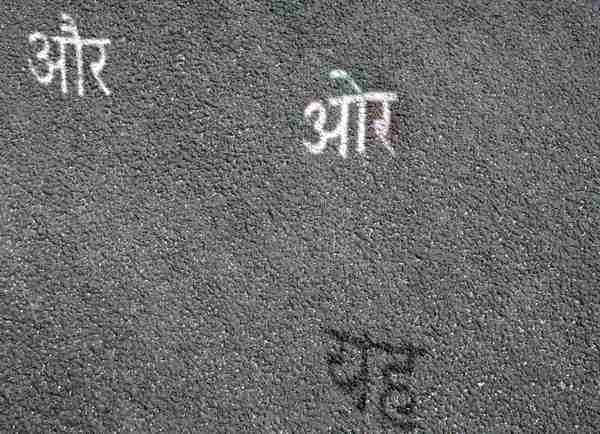 और
ओर
यह